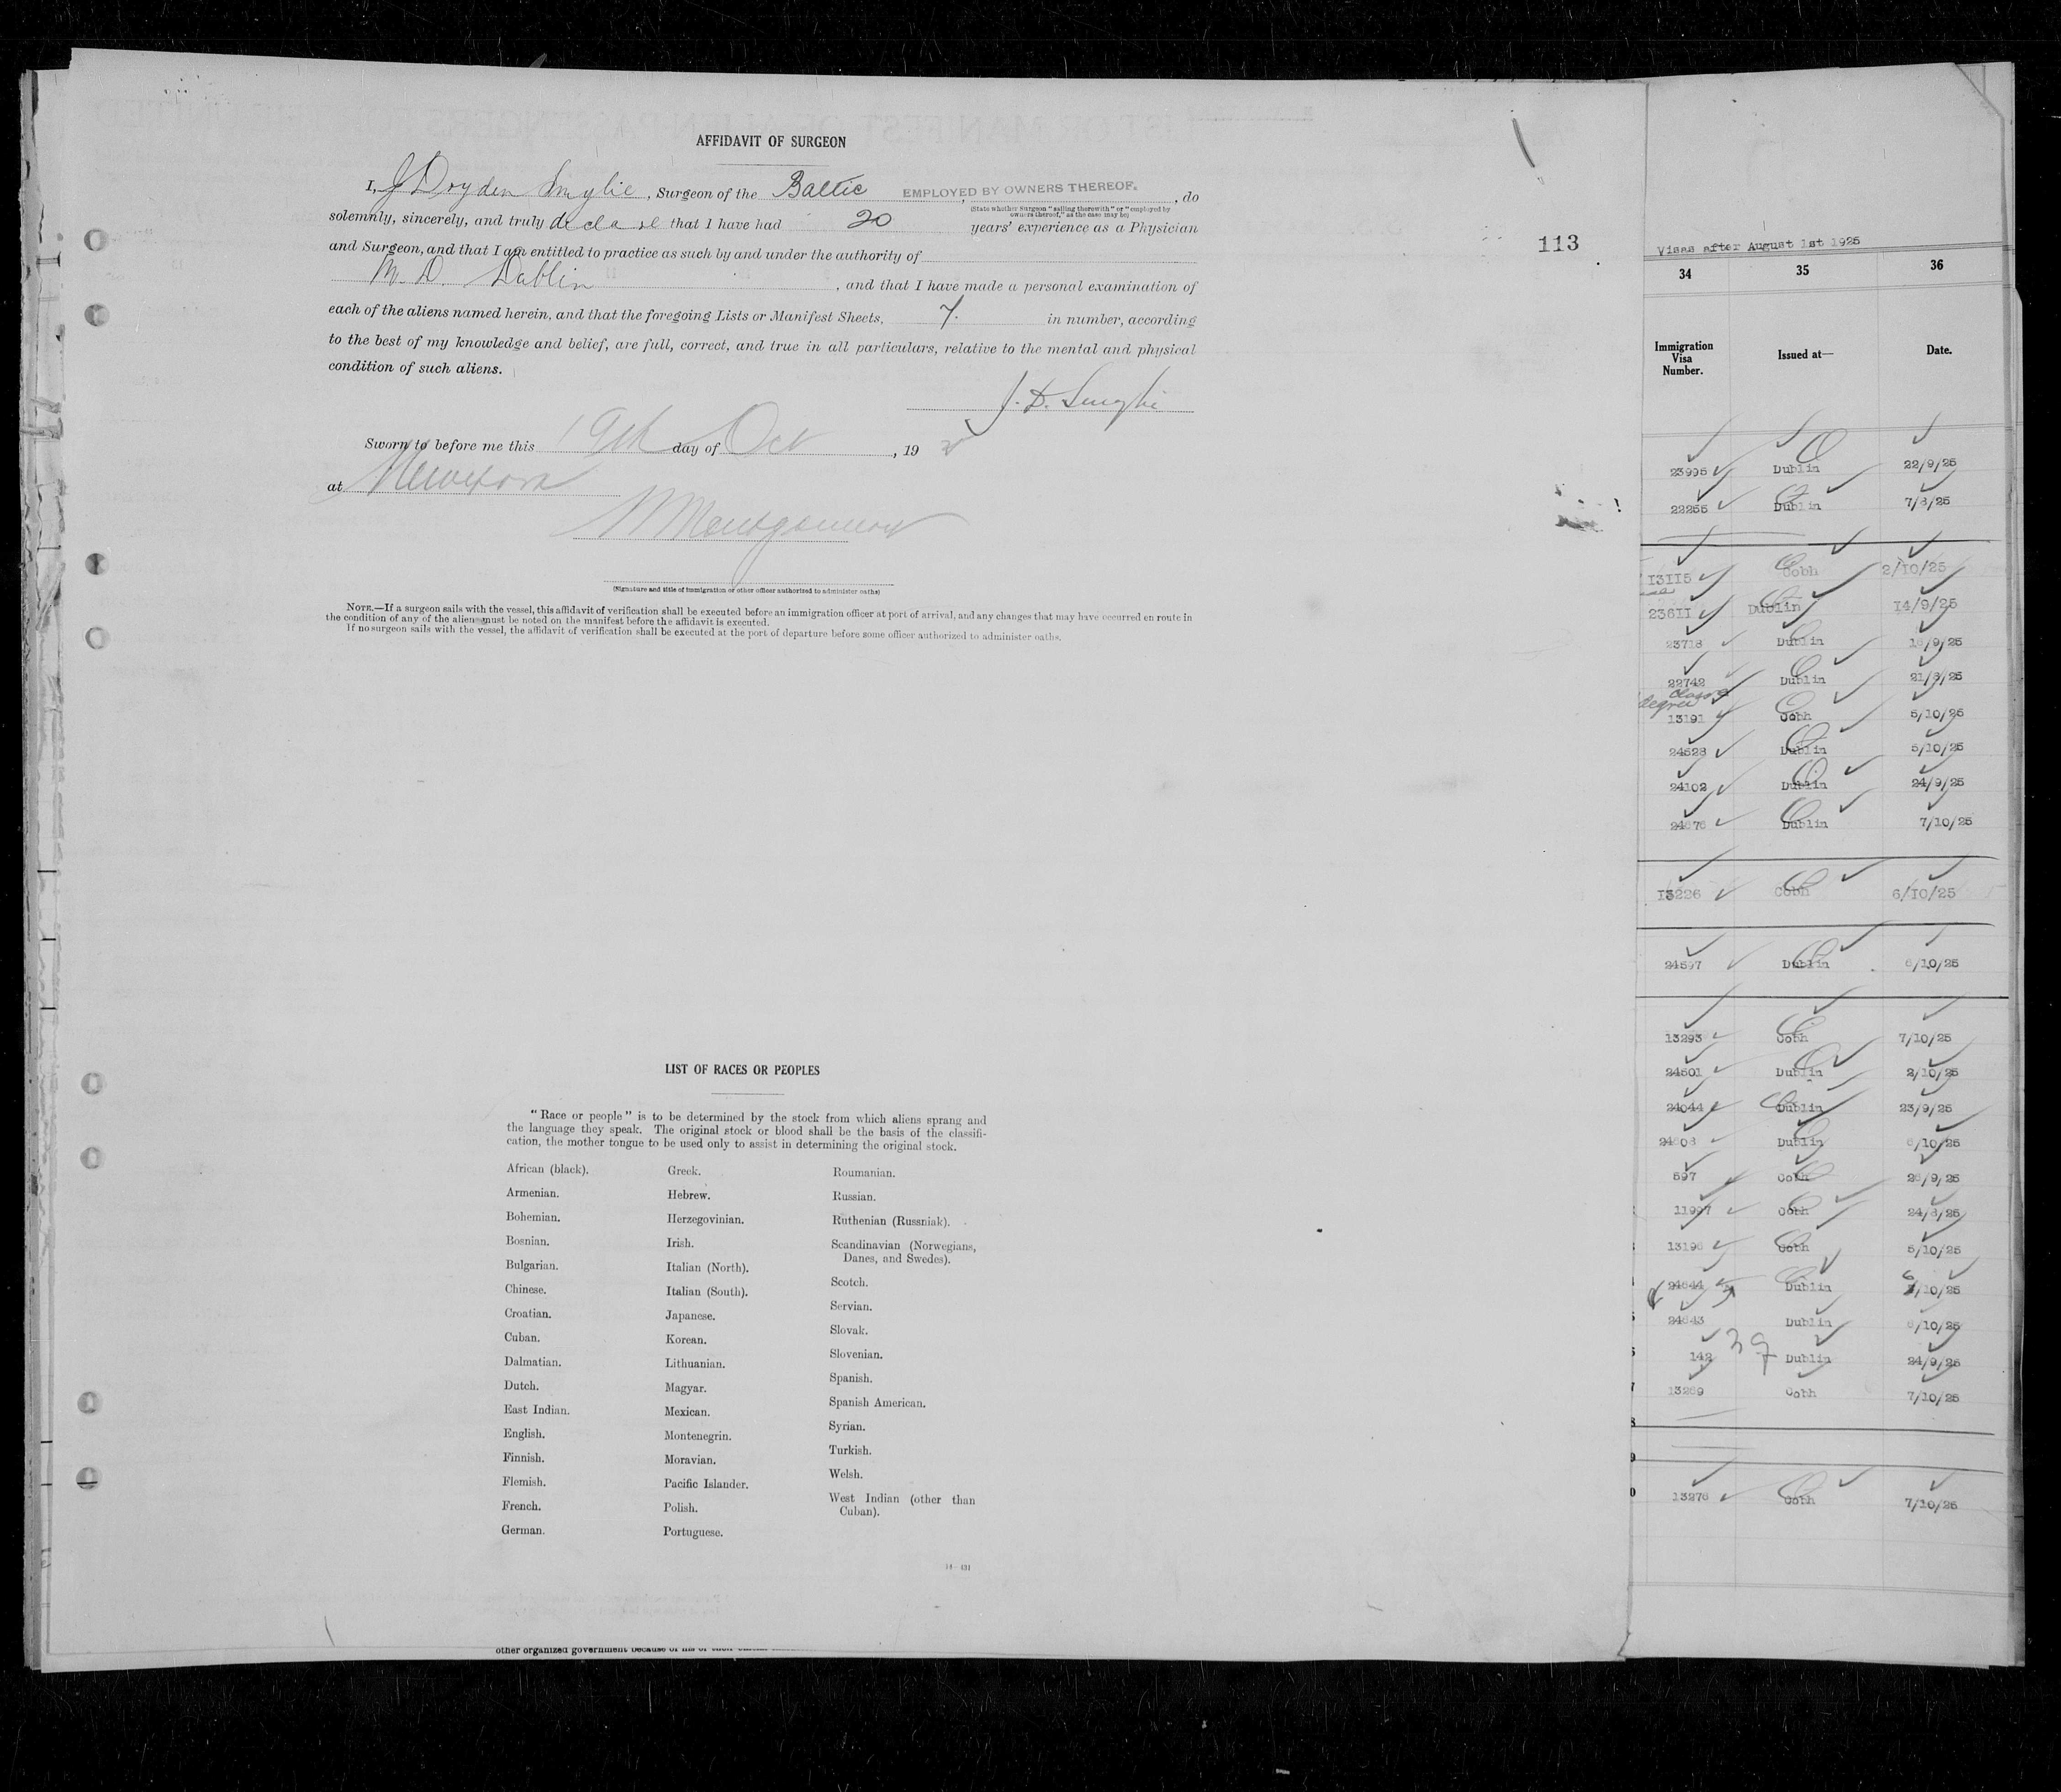 AFFIDAVIT OF SURGEON
I, J Dryden Smylie, Surgeon of the Baltic, EMPLOYED BY OWNERS THEREOF., do
(State whether Surgeon "sailing therewith" or "employed by
owners thereof," as the case may be)
solemnly, sincerely, and truly declare that I have had 20 years' experience as a Physician
and Surgeon, and that I am entitled to practice as such by and under the authority of
M.D. Dublin, and that I have made a personal examination of
each of the aliens named herein, and that the foregoing Lists or Manifest Sheets, 7. in number, according
to the best of my knowledge and belief, are full, correct, and true in all particulars, relative to the mental and physical
condition of such aliens.
J. D. Smylie
Sworn to before me this 19th day of Oct, 19
at New York
Montgomery
(Signature and title of immigration or other officer authorized to administer oaths)
NOTE.—If a surgeon sails with the vessel, this affidavit of verification shall be executed before an immigration officer at port of arrival, and any changes that may have occurred en route in
the condition of any of the aliens must be noted on the manifest before the affidavit is executed.
If no surgeon sails with the vessel, the affidavit of verification shall be executed at the port of departure before some officer authorized to administer oaths.
LIST OF RACES OR PEOPLES
"Race or people" is to be determined by the stock from which aliens sprang and
the language they speak. The original stock or blood shall be the basis of the classifi-
cation, the mother tongue to be used only to assist in determining the original stock.
African (black).
Armenian.
Bohemian.
Bosnian.
Bulgarian.
Chinese.
Croatian.
Cuban.
Dalmatian.
Dutch.
East Indian.
English.
Finnish.
Flemish.
French.
German.
Greek.
Hebrew.
Herzegovinian.
Irish.
Italian (North).
Italian (South).
Japanese.
Korean.
Lithuanian.
Magyar.
Mexican.
Montenegrin.
Moravian.
Pacific Islander.
Polish.
Portuguese.
Roumanian.
Russian.
Ruthenian (Russniak).
Scandinavian (Norwegians,
Danes, and Swedes).
Scotch.
Servian.
Slovak.
Slovenian.
Spanish.
Spanish American.
Syrian.
Turkish.
Welsh.
West Indian (other than
Cuban).
other organized government because of his or their
113
Visas after August 1st 1925
34 35 36
Immigration
Visa
Number.
Issued at—
Date.
23995 Dublin 22/9/25
22255 Dublin 7/8/25
13115 Cobh 2/10/25
23611 Dublin 14/9/25
23718 Dublin /9/25
22742 Dublin 21/8/25
13191 Cobh 5/10/25
24528 Dublin 5/10/25
24102 Dublin 24/9/25
24676 Dublin 7/10/25
13226 Cobh 6/10/25
24597 Dublin 6/10/25
13293 Cobh 7/10/25
24501 Dublin 2/10/25
24044 Dublin 23/9/25
24608 Dublin 6/10/25
597 Cobh /9/25
11997 Cobh 24/8/25
13196 Cobh 5/10/25
24644 Dublin 6/10/25
24643 Dublin 6/10/25
142 39 Dublin 24/9/25
13269 Cobh 7/10/25
13276 Cobh 7/10/25